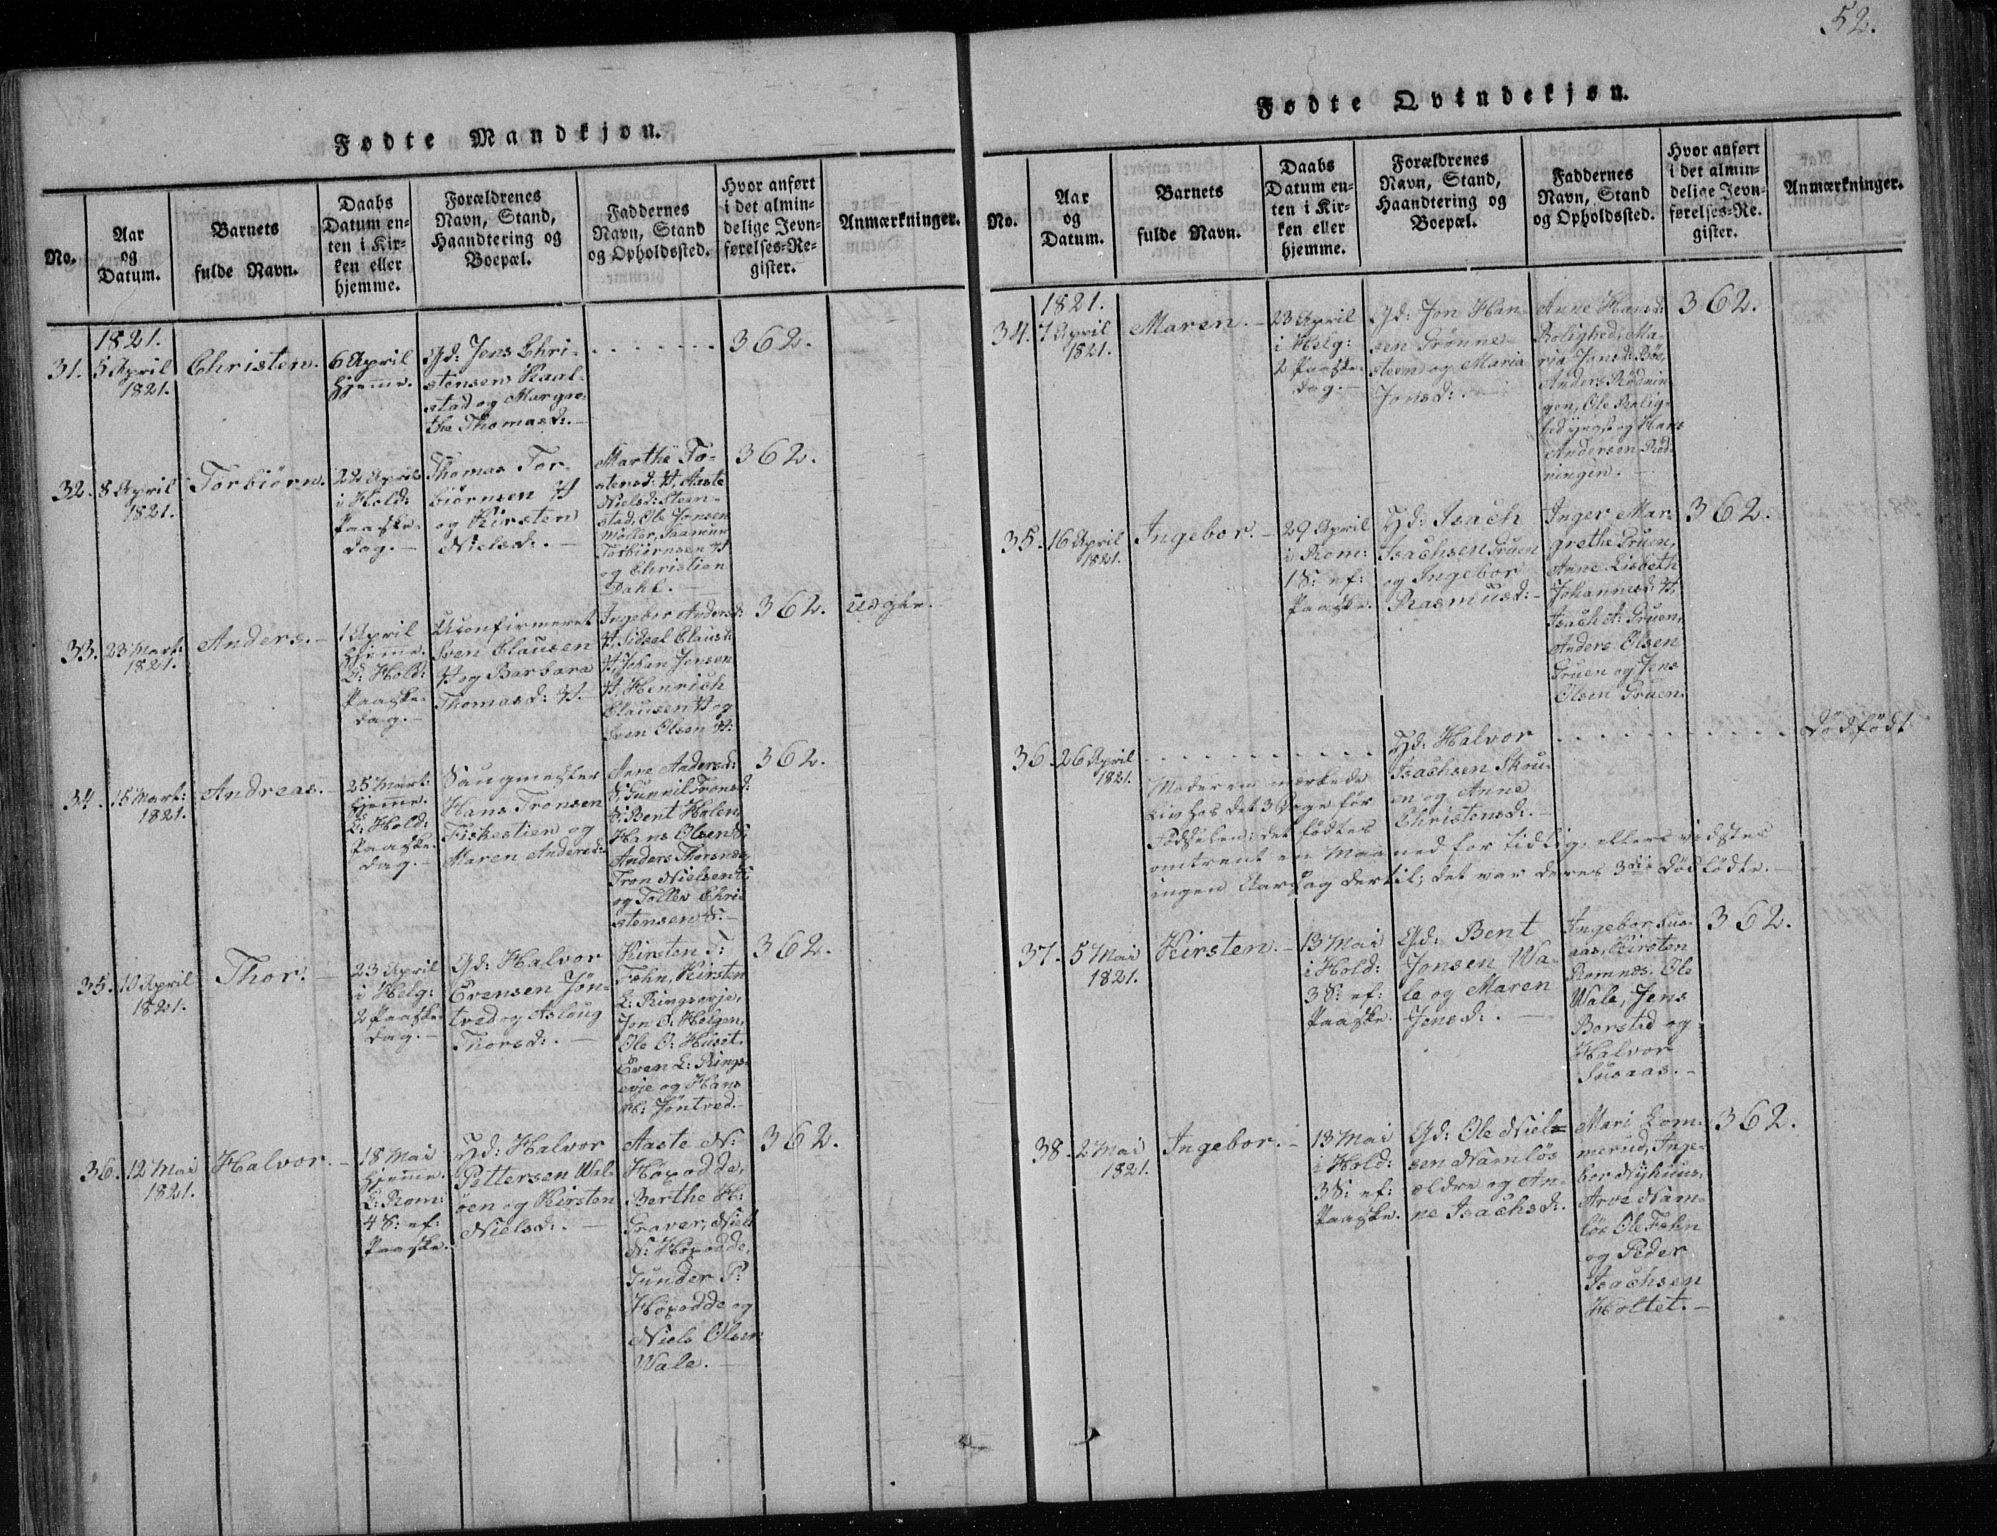 52.
Fødte Mandkjøn.
No.
Aar
og
Datum.
Barnets
fulde Navn.
Daabs
Datum en-
ten i Kir-
ken eller
hjemme.
Forældrenes
Navn, Stand,
Haandtering og
Boepæl.
Faddernes
Navn, Stand
og Opholdssted.
Hvor anført
i det almin-
delige Jevn-
førelses-Re-
gister.
Anmærkninger.
1821.
31. 5 April
1821.
Christen.
6 April
hjemme.
Gd: Jens Chri-
stensen Kaal-
stad og Margre-
the Thomasd:.
362.
32. 8 April
1821.
Torbiörn.
22 April
i Hold:
Paaske-
dag.
Thomas Tor-
biörnsen H
og Kirsten
Nielsd:.
Marthe To-
stensd: H, Aaste
Nielsd: Steen-
stad, Ole Jonsen
Möller,
Torbiörnsen H
og Christien
Dahl.
362.
33. 23 Mart:
1821.
Anders.
1 April
hjemme.
I: Hold:
Paaske-
dag.
Uconfirmeret
Sven Clausen
H og Barbara
Thomasd: H.
Ingebor Andersd:
H, Sidsel Clausd:
H, Johan Jensen
H, Henrich
Clausen H og
Sven Olsen H.
362.
uægte.
34. 15 Mart:
1821.
Andreas.
25 Mart:
hjemme.
I: Hold:
Paaske-
dag.
Saugmester
Hans Tronsen
Fiskestien og
Maren Andersd:
Anne Andersd:
Gunnil Tronsd:
Bent Holen,
Hans Olsen
Anders
Tron Nielsen
og Tollev Chri-
stensen
362.
35. 10 April
1821.
Thor.
23 April
i Helg:
2 Paaske-
dag.
Gd: Halvor
Evensen Jön-
tved og Aslöug
Thorsd:.
Kirsten T:
Fæhn, Kirsten
L: Ringsevje,
Jon O: Holgen,
Ole O: Huset,
Even L: Rings-
evje og Hans
Jöntved.
362.
36. 12 Mai
1821.
Halvor.
18 Mai
hjemme.
I: Rom:
4 S: ef:
Paaske.
Hd: Halvor
Pettersen Wal-
öen og Kirsten
Nielsd:.
Aaste N:
Höxodde,
Berthe H:
Graver, Niels
N: Höxodde,
Gunder P:
Höxodde og
Niels Olsen
Wale.
362.
Fødte Qvindekjøn.
No.
Aar
og
Datum.
Barnets
fulde Navn.
Daabs
Datum en-
ten i Kir-
ken eller
hjemme.
Forældrenes
Navn, Stand,
Haandtering og
Boepæl.
Faddernes
Navn, Stand
og Opholdssted.
Hvor anført
i det almin-
delige Jevn-
førelses-Re-
gister.
Anmærkninger.
1821.
34. 7 April
1821.
Maren.
23 April
i Helg:
2 Paaske-
dag.
Gd: Jon Han-
sen Grönne-
steen og Maria
Jonsd:.
Anne Hansd:
Rolighed, Ma-
ria Jensd: Böe,
Anders Rödnin-
gen, Ole Rolig-
hed yngst og Hans
Andersen Röd-
ningen.
362.
35. 16 April
1821.
Ingebor.
29 April
i Rom:
1 S: ef:
Paaske.
Hd: Isach
Isachsen Gruen
og Ingebor
Rasmusd:
Inger Mar-
grethe Gruen,
Anne Lisbeth
Johannesd: H
Isach A: Gruen,
Anders Olsen
Gruen og Jens
Olsen Gruen.
362.
36. 26 April
1821.
Hd: Halvor
Isachsen Skou-
en og Anne
Christensd:.
Dödfödt
Moderen mærkede
Liv hos det 3 Dage för
Födselen: det födtes
omtrent en Maaned for tidlig: ellers vidstes
ingen Aarsag dertil; det var deres 3die dödfödte.
37. 5 Mai
1821.
Kirsten.
13 Mai
i Hold:
3 S: ef:
Paaske.
Gd: Bent
Jonsen Wa-
le og Maren
Jensd:.
Ingebor Sus-
aas, Kirsten
Romnes, Ole
Wale, Jens
Borstad og
Halvor
Susaas.
362.
38. 2 Mai
1821.
Ingebor.
13 Mai
i Hold:
3 S: ef:
Paaske.
Gd: Ole Niel-
sen Namlös
ældre og An-
ne Isachsd:.
Mari Lom-
merud, Inge-
bor Nyhuus,
Arve Nam-
lös, Ole Fæhn
og Peder
Isachsen
Holtet.
362.